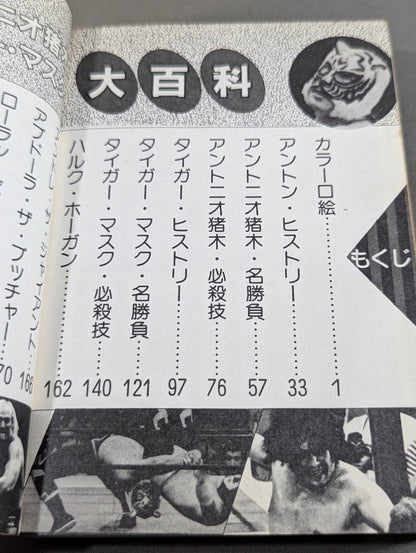 大百科
もくじ
カラー口絵…………1
アントン・ヒストリー……33
アントニオ猪木・名勝負……57
アントニオ猪木・必殺技……76
タイガー・ヒストリー……97
タイガー・マスク・名勝負……121
タイガー・マスク・必殺技……140
ハルク・ホーガン…………162
アブドーラ・ザ・ブッチャー……